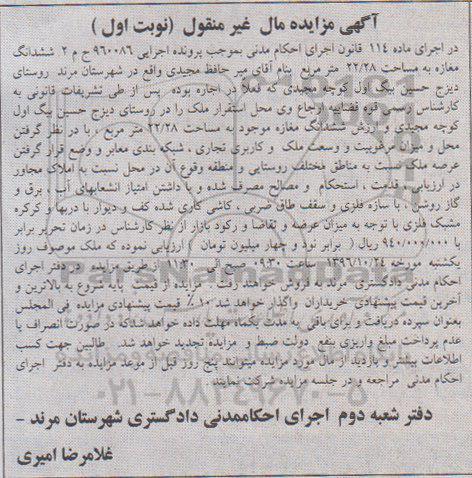 آگهی مزایده مال غیر منقول (نوبت اول)
در اجرای ماده ۱۱۴ قانون اجرای احکام مدنی بموجب پرونده اجرایی ۹۶۰۰۸۶ ح م ۲ ششدانگ
مغازه به مساحت ۲۲/۲۸ متر مربع بنام آقای میر حافظ مجیدی واقع در شهرستان مرند روستای
دیزج حسین بیگ اول کوچه مجیدی که فعلا در اجاره بوده پس از طی تشریفات قانونی به
کارشناس رسمی قوه قضاییه ارجاع وی محل استقرار ملک را در روستای دیزج حسین بیگ اول
کوچه مجیدی و ارزش ششدانگ مغازه موجود به مساحت ۲۲/۲۸ متر مربع با در نظر گرفتن
محل و میزان مرغوبیت و وسعت ملک و کاربری تجاری ، شبکه بندی معابر و وضع قرار گرفتن
عرصه ملک نسبت به مناطق مختلف روستایی و منطقه وقوع آن در محل نسبت به املاک مجاور
در ارزیابی ، قدمت ، استحکام و مصالح مصرف شده و با داشتن امتیاز انشعابهای آب ، برق و
گاز روشن ، با سازه فلزی و سقف طاق ضربی ، کاشی کاری شده کف و دیوار با دربهای کرکره
مشبک فلزی با توجه به میزان عرضه و تقاضا و رکود بازار از نظر کارشناس در زمان تحریر برابر
با ۹۴۰/۰۰۰/۰۰۰ ریال ( برابر نود و چهار میلیون تومان ) ارزیابی نموده که ملک موصوف روز
یکشنبه مورخه ۱۳۹۶/۱۰/۲۴ ساعت ۰۹:۳۰ صبح الی ۱۱:۳۰ از طریق مزایده در دفتر اجرای
احکام مدنی دادگستری مرند به فروش خواهد رفت . مزایده از قیمت پایه شروع به بالاترین و
آخرین قیمت پیشنهادی خریداران واگذار خواهد شد ۱۰٪ قیمت پیشنهادی مزایده فی المجلس
بعنوان سپرده دریافت و برای باقی به مدت یکماه مهلت داده خواهد شد که در صورت انصراف یا
عدم پرداخت مبلغ واریزی بنفع دولت ضبط و مزایده تجدید خواهد شد طالبین جهت کسب
اطلاعات بیشتر و بازدید از مال مورد مزایده میتوانند پنج روز قبل از موعد مزایده به دفتر اجرای
احکام مدنی مراجعه و در جلسه مزایده شرکت نمایند
دفتر شعبه دوم اجرای احکاممدنی دادگستری شهرستان مرند -
غلامرضا امیری
ParsNamadData
۰۲۱-۸۸۳۴۹۶۷۰-۵